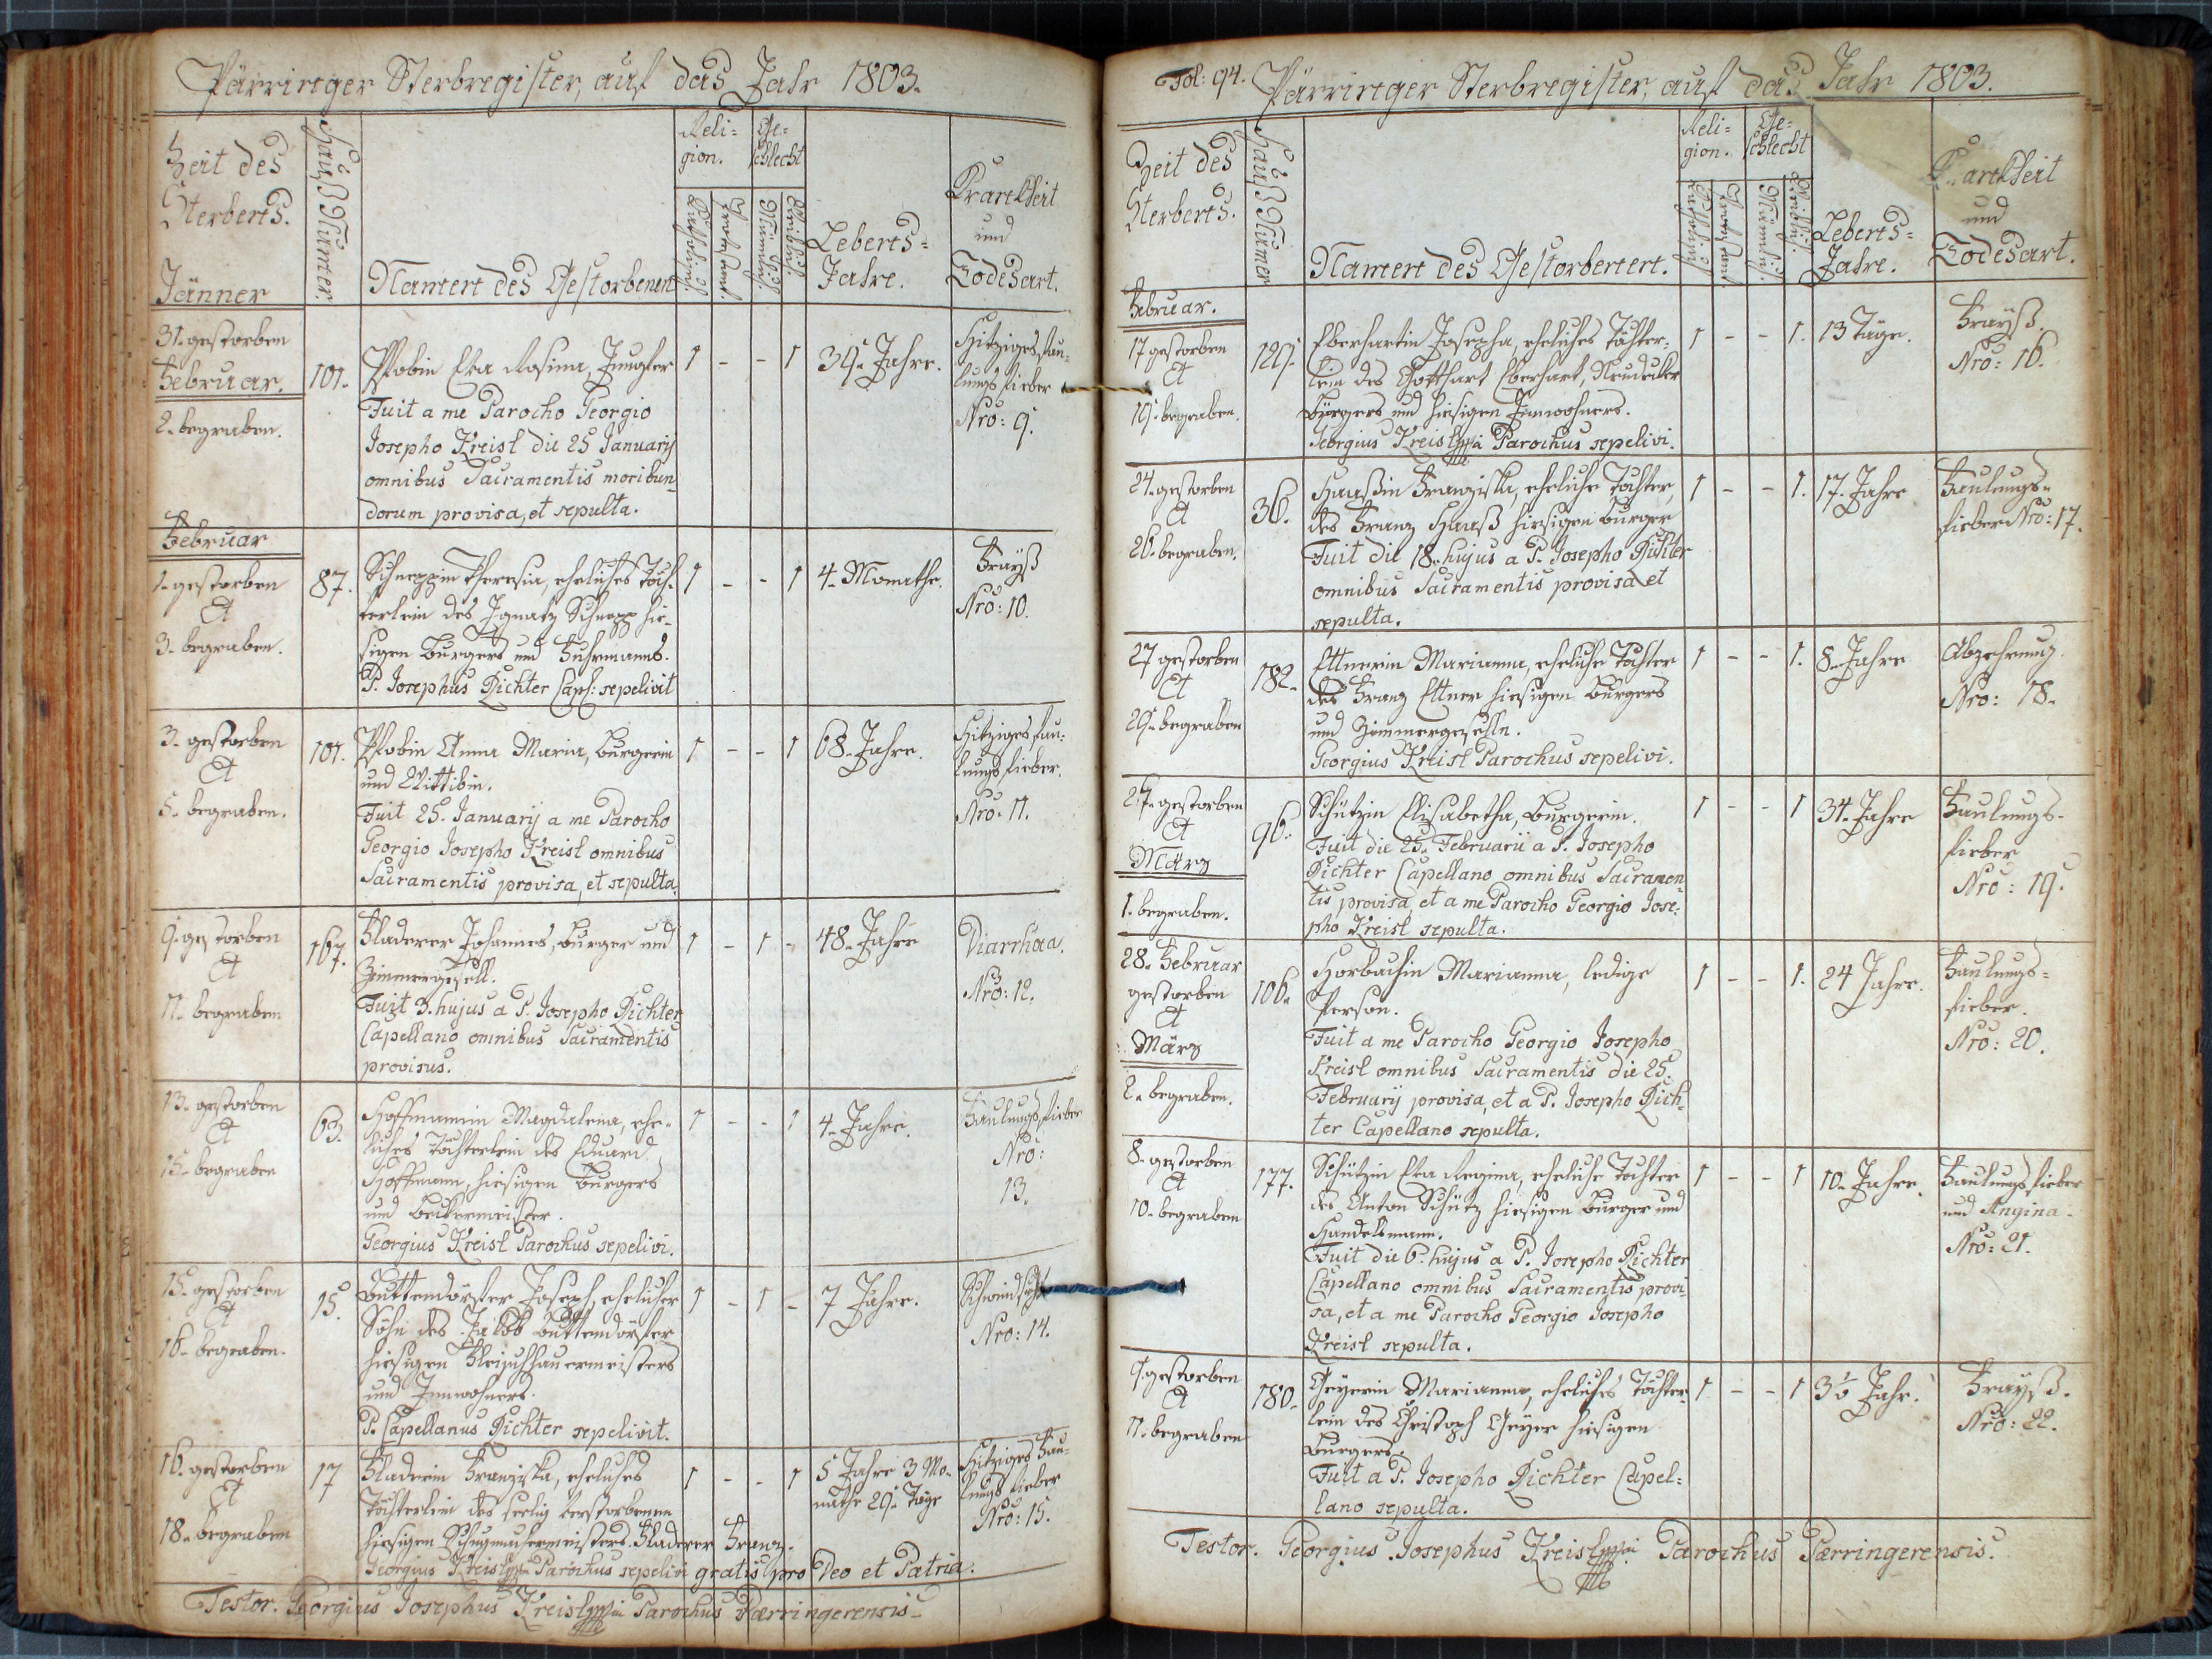 Pärringer Sterbregister, auf das Jahr 1803.
Zeit des
Sterbens.
Jänner
Hauß Numer.
Namen des Gestorbenen
Reli=
gion.
Katholisch
Protestant.
Ge=
schlecht
Männlich
Weiblich
Lebens=
Jahre.
Krankheit
und
Todesart.
31. gestorben
Februar.
2. begraben.
101.
Pfobin Eva Rosina, Jungfer
Fuit a me Parocho Georgio
Josepho Kreisl die 25 Januarij
omnibus Sacramentis moribun=
dorum provisa, et sepulta.
1 - - 1
39. Jahre.
Hitziges fau=
lungs fieber
Nro: 9.
Februar
1. gestorben
et
3. begraben.
87.
Schneppin Theresia, eheliches Töch=
terlein des Ignatz Schnepp hie=
sigen Burgers und Fuhrmanns.
P. Josephus Richter Capl: sepelivit
1 - - 1
4. Monathe.
Frayß
Nro: 10.
3. gestorben
et
5. begraben.
101.
Pfobin Anna Maria, Burgerin
und Wittibin.
Fuit 25. Januarij a me Parocho
Georgio Josepho Kreisl omnibus
Sacramentis provisa, et sepulta.
1 - - 1
68. Jahre.
Hitziges fau=
lungs fieber.
Nro. 11.
9. gestorben
et
11. begraben
167.
Fladerer Johannes, Burger und
Zimmergesell.
Fuit 3. hujus a P. Josepho Richter
Capellano omnibus Sacramentis
provisus.
1 - 1 -
48. Jahre
Diarrhœa.
Nro: 12.
13. gestorben
et
15. begraben
63.
Hoffmannin Magdalena, ehe=
liches Töchterlein des Eduard
Hoffmann, hiesigen Burgers
und Beckermeister.
Georgius Kreisl Parochus sepelivi.
1 - - 1
4. Jahre.
Faulungs fieber
Nro:
13.
15. gestorben
et
16. begraben.
15.
Buttendörfer Joseph, ehelicher
Sohn des Jakob Buttendörfer
hiesigen Fleischhauermeisters
und Innwohners.
P. Capellanus Richter sepelivit.
1 - 1 -
7 Jahre.
Schwindsucht
Nro: 14.
16. gestorben
et
18. begraben
17
Fladerin Franziska, eheliches
Töchterlein des seelig verstorbenen
hiesigen Schuhmachermeisters. Fladerer Franz.
Georgius Kreisl Parochus sepelivi gratis pro Deo et Patria.
1 - - 1
5 Jahre 3 Mo=
nathe 29. Täge
Hitziges Fau=
lungs fieber
Nro: 15.
Testor. Georgius Josephus Kreisl Parochus Pærringerensis
Fol: 94.
Pärringer Sterbregister, auf das Jahr 1803.
Zeit des
Sterbens.
Hauß Numer
Namen des Gestorbenen.
Reli=
gion.
Katholisch
Protestant
Ge=
schlecht
Männlich
Weiblich
Lebens=
Jahre.
Krankheit
und
Todesart.
Februar.
17 gestorben
et
19. begraben.
129.
Eberhartin Josepha, eheliches Töchter=
lein des Gotthart Eberhart, Neudecker
Bürgers und hiesigen Innwohners.
Georgius Kreisl Parochus sepelivi.
1 - - 1.
13 Täge.
Frayß.
Nro: 16.
24. gestorben
et
26. begraben.
36.
Haaßin Franziska, eheliche Tochter,
des Franz Haaß hiesigen Burger
Fuit die 18. hujus a P. Josepho Richter
omnibus Sacramentis provisa et
sepulta.
1 - - 1.
17. Jahre
Faulungs=
fieber Nro: 17.
27 gestorben
et
29. begraben
182.
Ettnerin Marianna, eheliche Tochter
des Franz Ettner hiesigen Burgers
und Zimmergeselln.
Georgius Kreisl Parochus sepelivi.
1 - - 1.
8. Jahre
Abzehrung.
Nro: 18.
27. gestorben
et
März
1. begraben.
96.
Schützin Elisabetha, Burgerin.
Fuit die 25. Februarii a P. Josepho
Richter Capellano omnibus Sacramen=
tis provisa, et a me Parocho Georgio Jose=
pho Kreisl sepulta.
1 - - 1
34. Jahre
Faulungs=
fieber
Nro: 19.
28. Februar
gestorben
et
März
2. begraben.
106.
Horbachin Marianna, ledige
Person.
Fuit a me Parocho Georgio Josepho
Kreisl omnibus Sacramentis die 25.
Februarij provisa, et a P. Josepho Rich=
ter Capellano sepulta.
1 - - 1.
24 Jahre.
Faulungs=
fieber.
Nro: 20.
8. gestorben
et
10. begraben
177.
Schützin Eva Regina, eheliche Tochter
des Anton Schütz hiesigen Burger und
Handelsmann.
Fuit die 6. hujus a P. Josepho Richter
Capellano omnibus Sacramentis provi=
sa, et a me Parocho Georgio Josepho
Kreisl sepulta.
1 - - 1
10. Jahre.
Faulungs fieber
und Angina.
Nro: 21.
9. gestorben
et
11. begraben
180.
Geyerin Marianna, eheliches Töchter=
lein des Christoph Geyer hiesigen
Burgers.
Fuit a P. Josepho Richter Capel=
lano sepulta.
1 - - 1
Jahr.
Frayß.
Nro: 22.
Testor. Georgius Josephus Kreisl Parochus Pærringerensis.